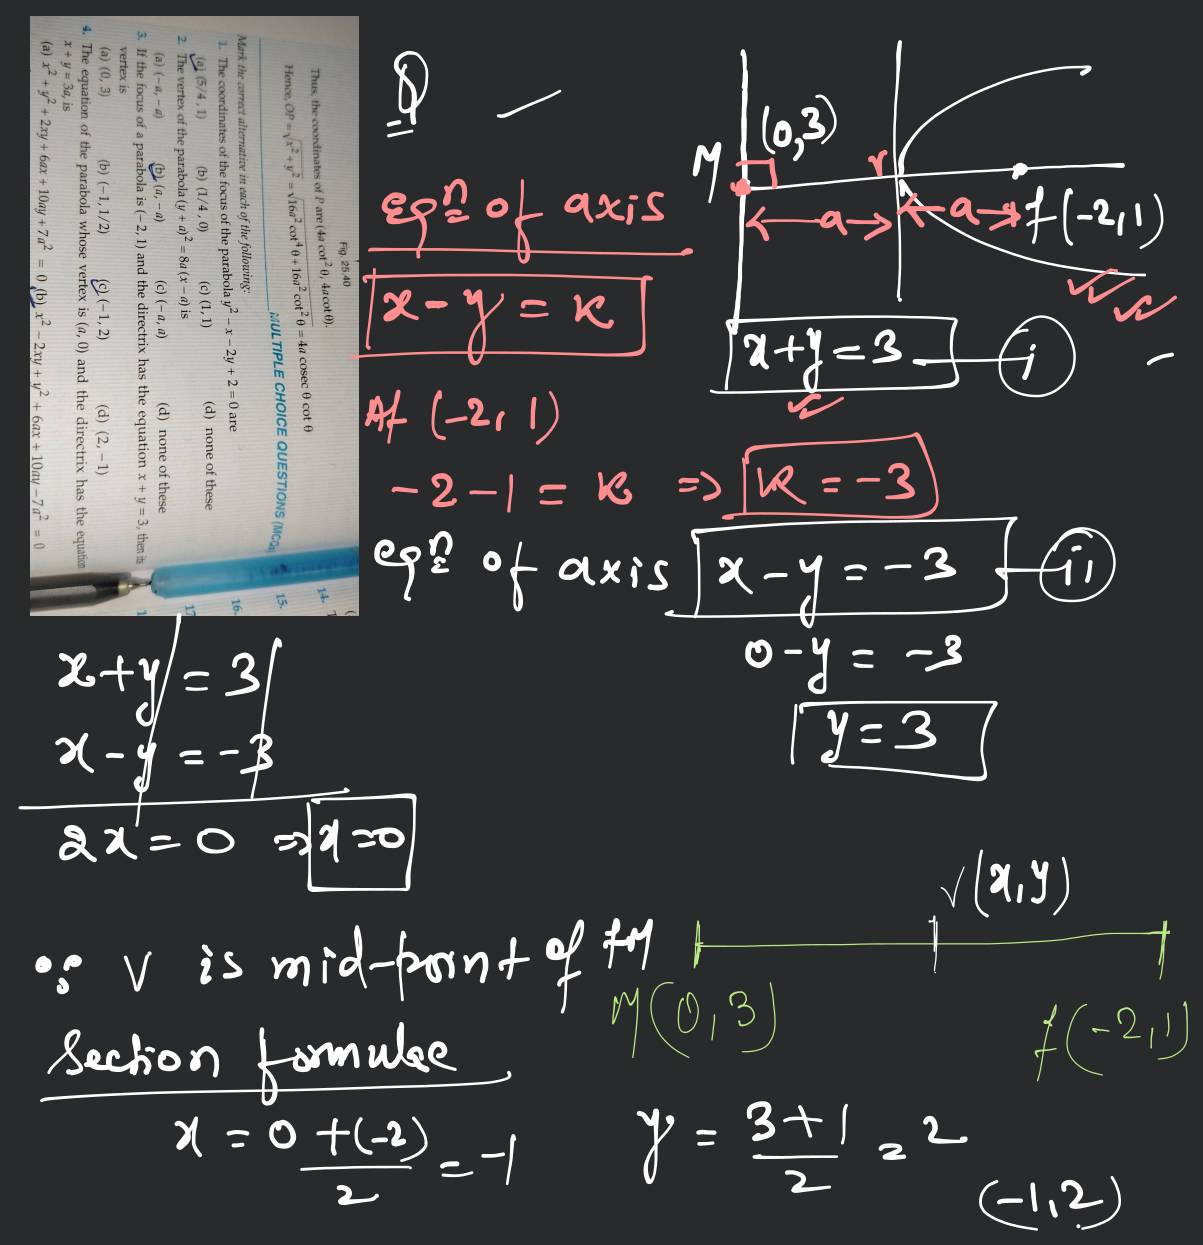 Fig. 25.40
Thus, the coordinates of P are (4a cot² θ, 4a cot θ).
Hence, OP = √x² + y² = √16a² cot⁴ θ + 16a² cot² θ = 4a cosec θ cot θ
MULTIPLE CHOICE QUESTIONS (MCQs)
Mark the correct alternative in each of the following:
1. The coordinates of the focus of the parabola y² − x − 2y + 2 = 0 are
(a) (5/4, 1) (b) (1/4, 0) (c) (1, 1) (d) none of these
2. The vertex of the parabola (y + a)² = 8a (x − a) is
(a) (−a, −a) (b) (a, −a) (c) (−a, a) (d) none of these
3. If the focus of a parabola is (−2, 1) and the directrix has the equation x + y = 3, then its
vertex is
(a) (0, 3) (b) (−1, 1/2) (c) (−1, 2) (d) (2, −1)
4. The equation of the parabola whose vertex is (a, 0) and the directrix has the equation
x + y = 3a, is
(a) x² + y² + 2xy + 6ax + 10ay + 7a² = 0 (b) x² − 2xy + y² + 6ax + 10ay − 7a² = 0
14.
15.
16.
17
1
Q
M (0,3) r
a a f(-2,1)
x+y=3 i
eqn of axis
x-y = k
At (-2, 1)
-2-1 = k => k = -3
eqn of axis x-y = -3 ii
0-y = -3
y = 3
x+y = 3
x-y = -3
2x = 0 => x=0
∵ V is mid-point of FM
V(x,y)
M(0,3) f(-2,1)
Section formulae
x = 0+(-2)/2 = -1 y = 3+1/2 = 2
(-1,2)